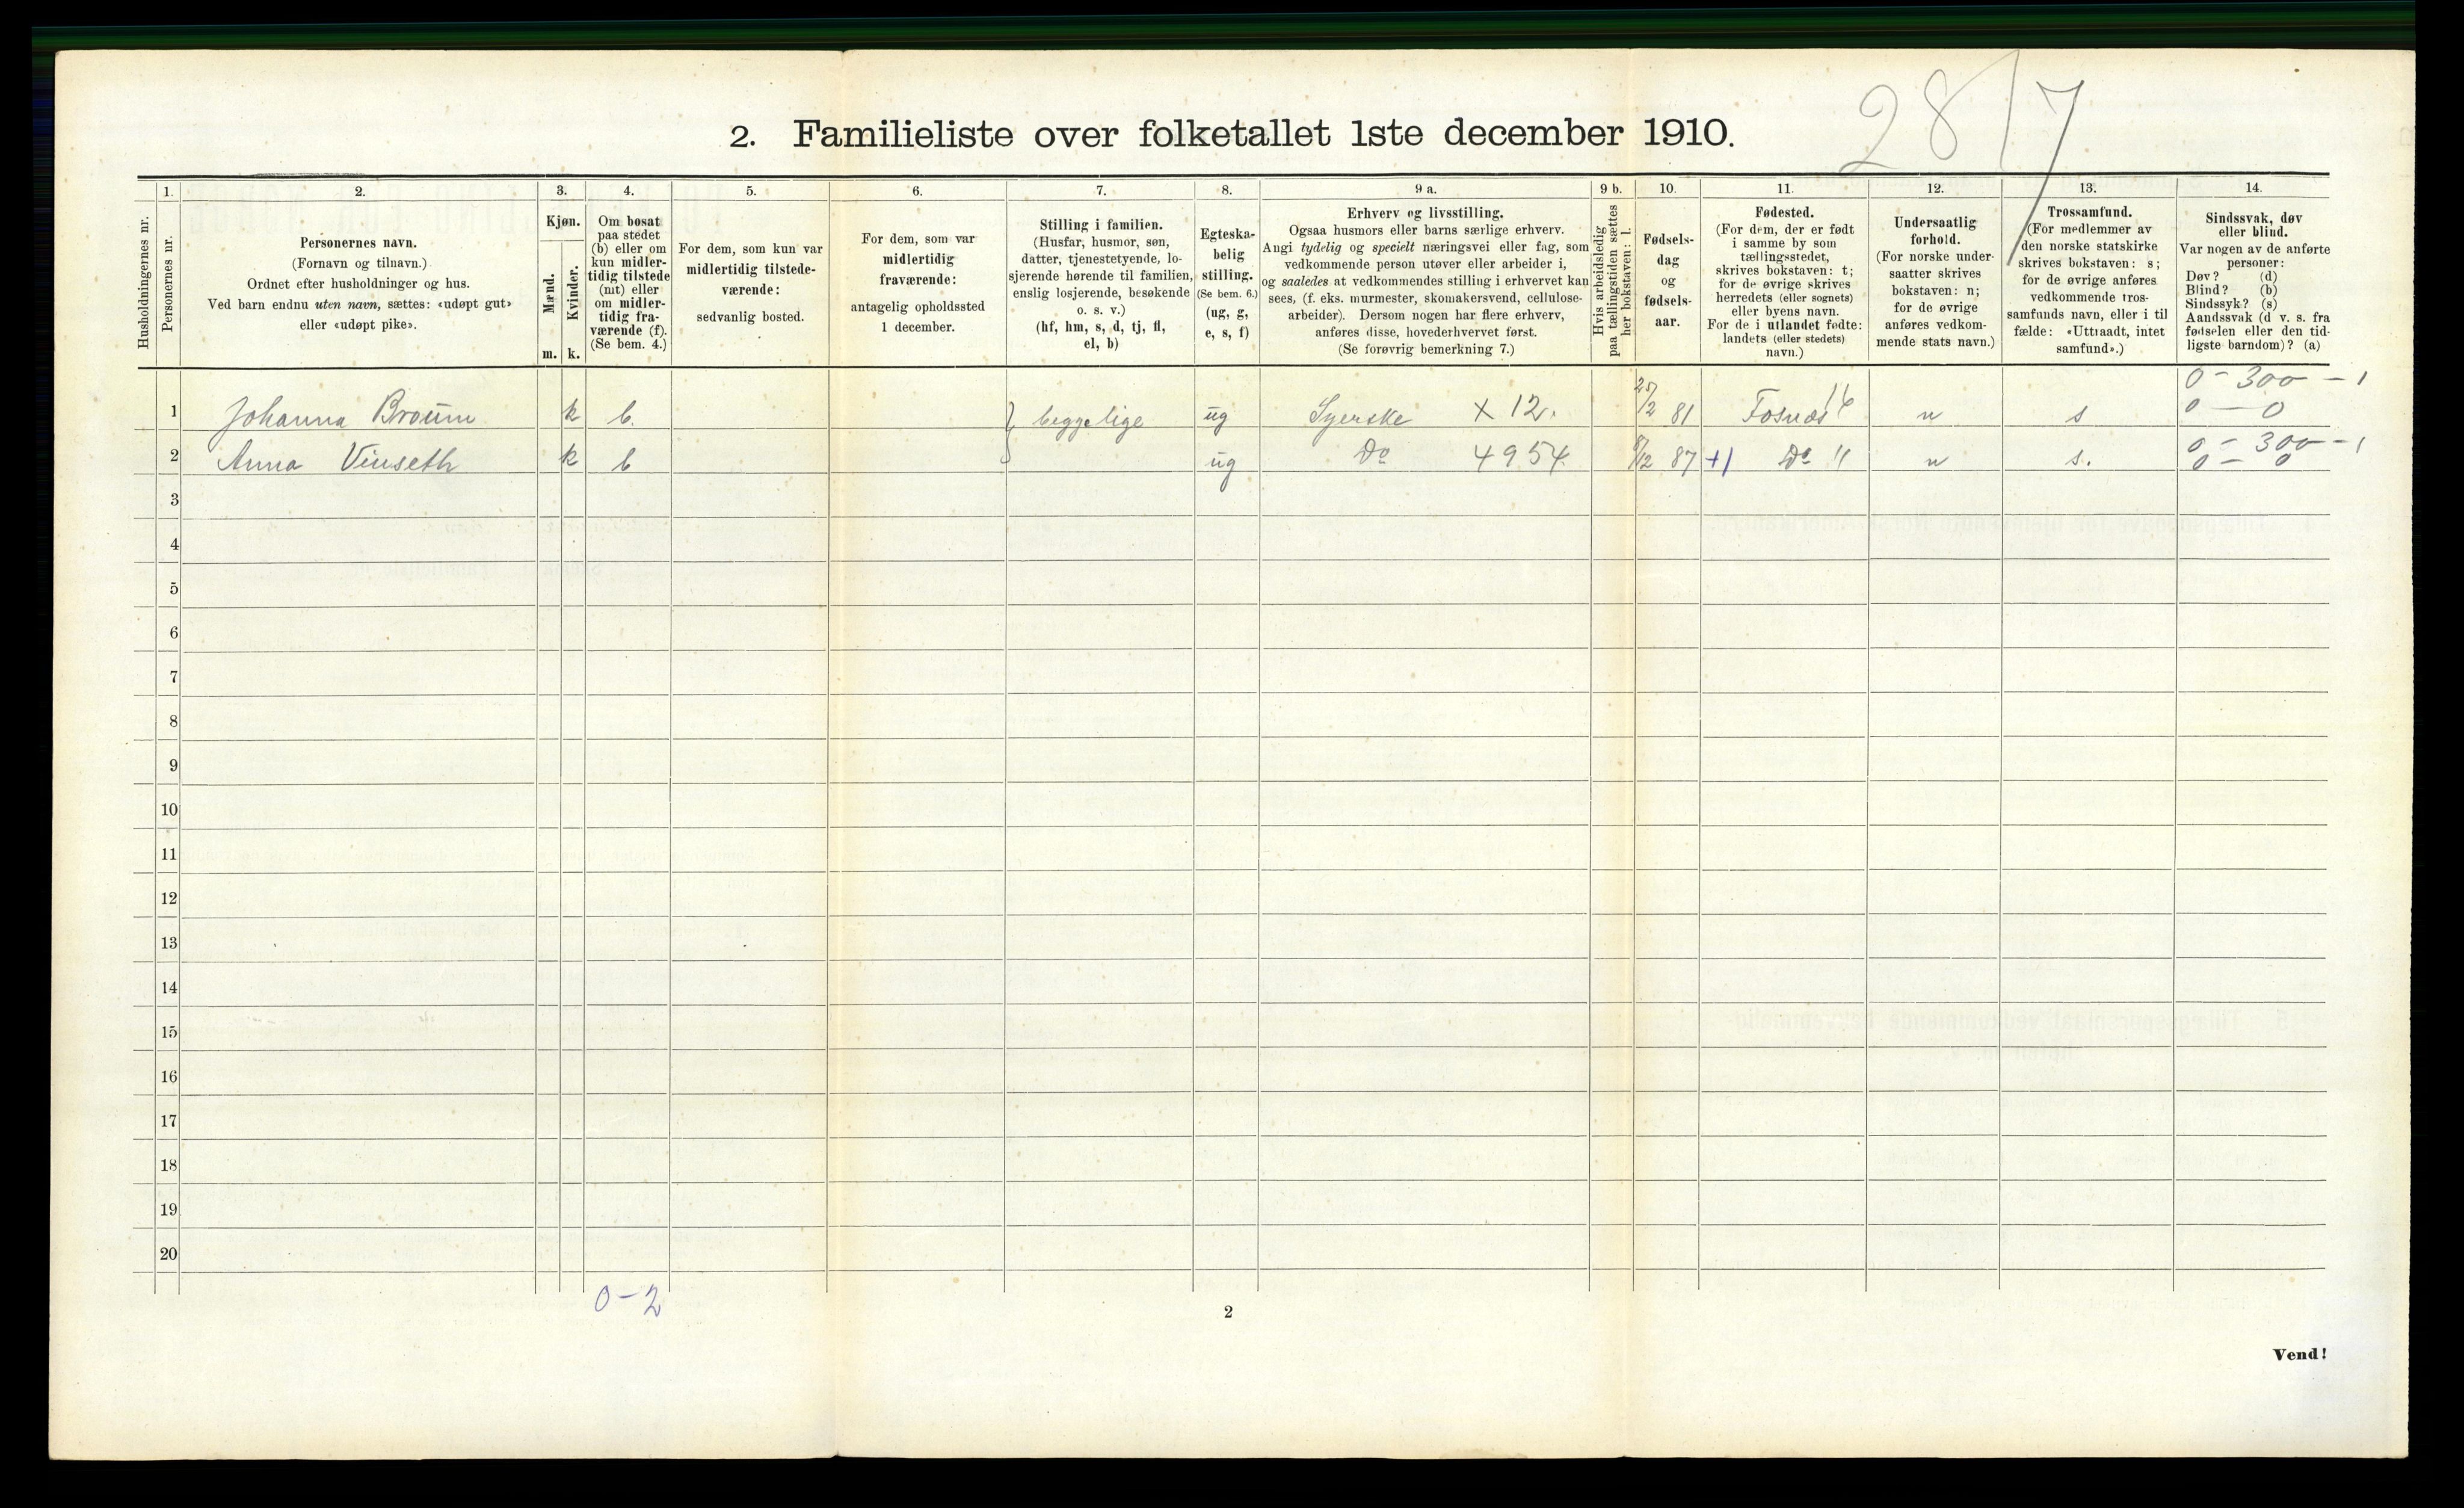 28/7
2. Familieliste over folketallet 1ste december 1910.
1. 2. 3. 4. 5. 6. 7. 8. 9 a. 9 b. 10. 11. 12. 13. 14.
Husholdningernes nr.
Personernes nr.
Personernes navn.
(Fornavn og tilnavn.)
Ordnet efter husholdninger og hus.
Ved barn endnu uten navn, sættes: «udøpt gut»
eller «udøpt pike».
Kjøn.
Mænd.
Kvinder.
m. k.
Om bosat
paa stedet
(b) eller om
kun midler-
tidig tilstede
(mt) eller
om midler-
tidig fra-
værende (f).
(Se bem. 4.)
For dem, som kun var
midlertidig tilstede-
værende:
sedvanlig bosted.
For dem, som var
midlertidig
fraværende:
antagelig opholdssted
1 december.
Stilling i familien.
(Husfar, husmor, søn,
datter, tjenestetyende, lo-
sjerende hørende til familien,
enslig losjerende, besøkende
o. s. v.)
(hf, hm, s, d, tj, fl,
el, b)
Egteska-
belig
stilling.
(Se bem. 6.)
(ug, g,
e, s, f)
Erhverv og livsstilling.
Ogsaa husmors eller barns særlige erhverv.
Angi tydelig og specielt næringsvei eller fag, som
vedkommende person utøver eller arbeider i,
og saaledes at vedkommendes stilling i erhvervet kan
sees, (f. eks. murmester, skomakersvend, cellulose-
arbeider). Dersom nogen har flere erhverv,
anføres disse, hovederhvervet først.
(Se forøvrig bemerkning 7.)
Hvis arbeidsledig
paa tællingstiden sættes
her bokstaven: l.
Fødsels-
dag
og
fødsels-
aar.
Fødested.
(For dem, der er født
i samme by som
tællingsstedet,
skrives bokstaven: t;
for de øvrige skrives
herredets (eller sognets)
eller byens navn.
For de i utlandet fødte:
landets (eller stedets)
navn.)
Undersaatlig
forhold.
(For norske under-
saatter skrives
bokstaven: n;
for de øvrige
anføres vedkom-
mende stats navn.)
Trossamfund.
(For medlemmer av
den norske statskirke
skrives bokstaven: s;
for de øvrige anføres
vedkommende tros-
samfunds navn, eller i til
fælde: «Uttraadt, intet
samfund».)
Sindssvak, døv
eller blind.
Var nogen av de anførte
personer:
Døv? (d)
Blind? (b)
Sindssyk? (s)
Aandssvak (d v. s. fra
fødselen eller den tid-
ligste barndom)? (a)
0 - 300 - 1
1 Johanna Broum k b. } beggelige ug Syerske X 12. 25/2 81 Fosnæs 16 n s 0 - 0
0 - 300 - 1
2 Anna Vinseth k b ug Do 4954 8/12 87 +1 Do " n s. 0 - 0
3
4
5
6
7
8
9
10
11
12
13
14
15
16
17
18
19
20
0-2
2
Vend!